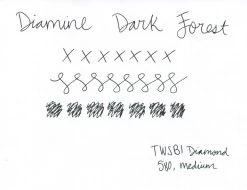 Diamine Dark Forest
x x x x x x x
TWSBI Diamond
580, medium